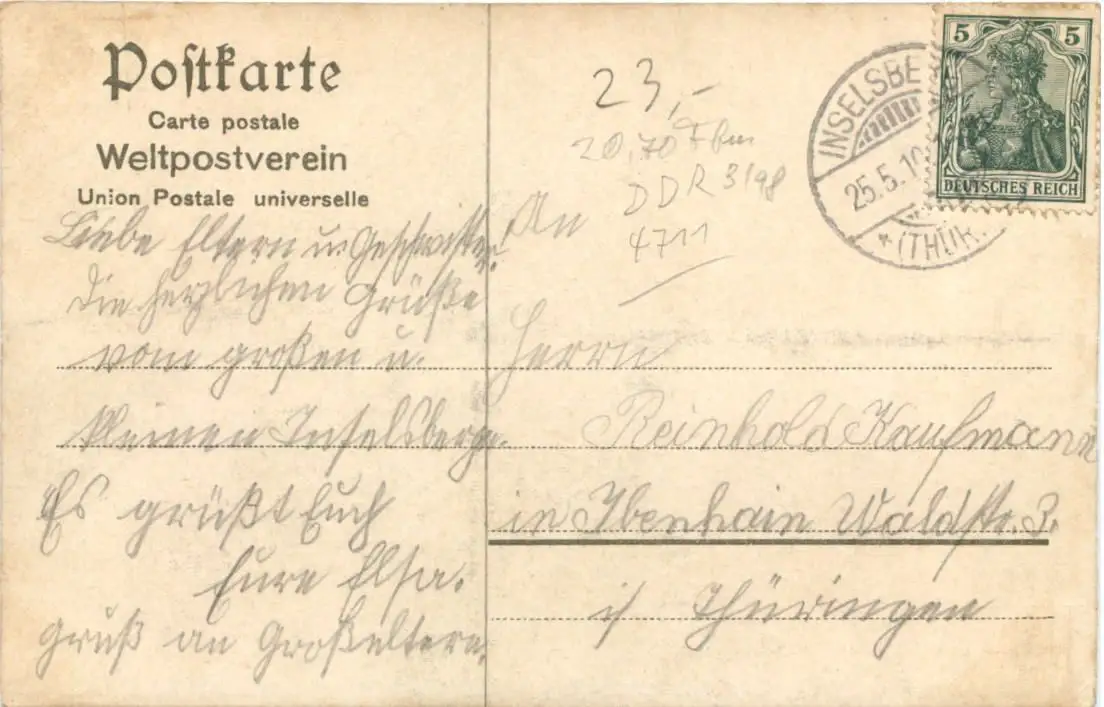 Postkarte
Carte postale
Weltpostverein
Union Postale universelle
Liebe Eltern u. Geschwister
Die herzlichen Grüße
vom großen u.
kleinen Inselsberge.
Es grüßt Euch
Eure Elsa.
Gruß an Großeltern.
23,-
20,70
DDR 3/98
4711
An
Herrn
Reinhold Kaufmann
in Ibenhain Waldstr. 3.
i/ Thüringen
INSELSBERG
25.5.10
* (THÜR.
5 5
DEUTSCHES REICH